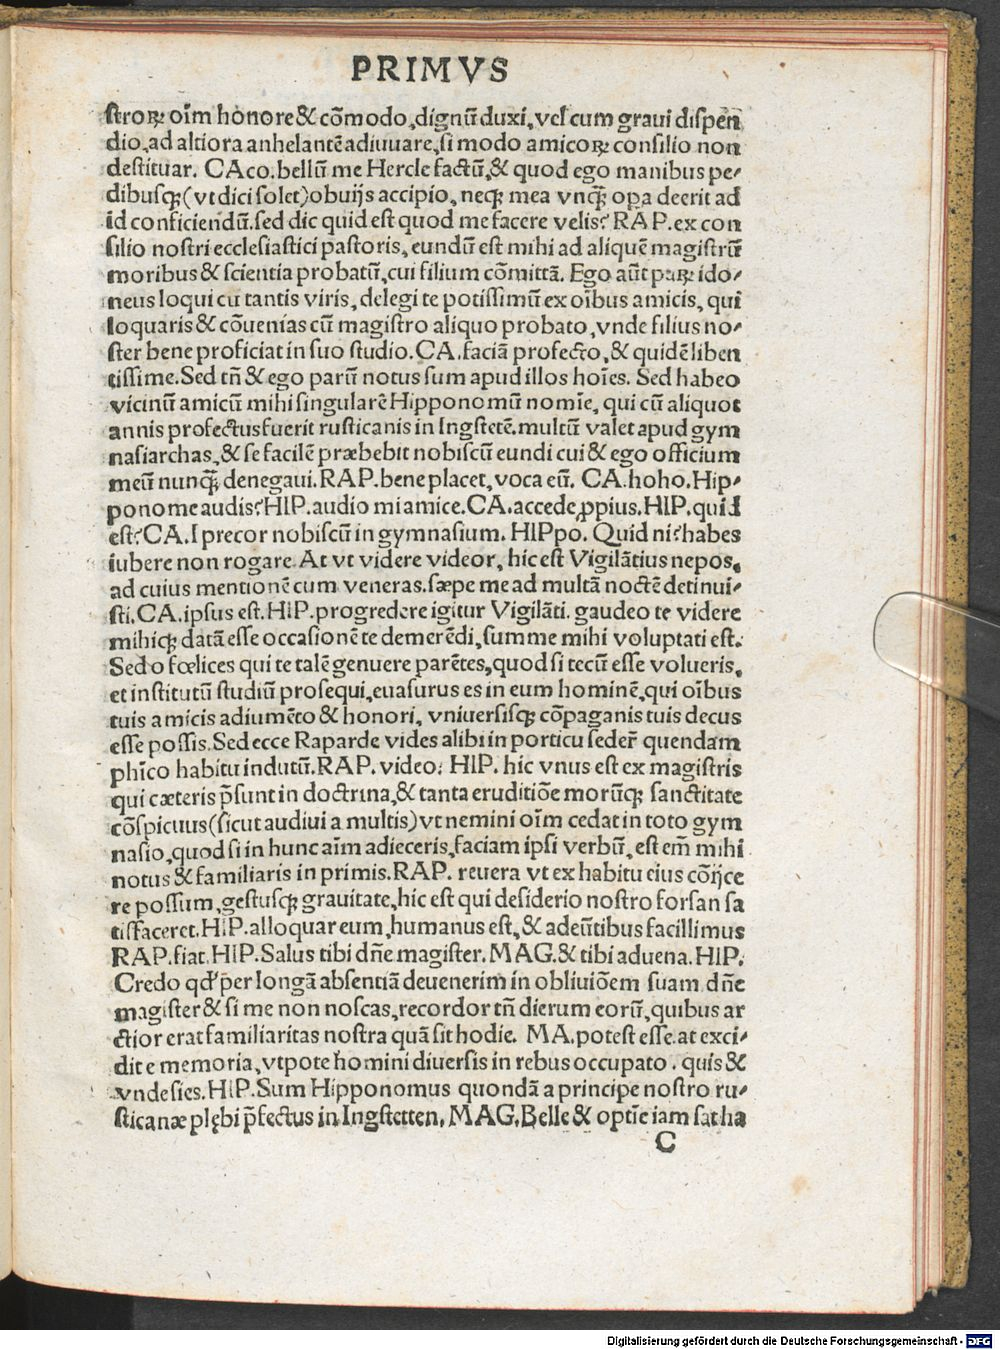 PRIMVS
ſtroꝝ oı̄m honore & cōmodo, dignū duxi, vel cum graui diſpen
dio, ad altiora anhelantē adiuuare, ſi modo amicoꝝ conſilio non
deſtituar. CAco. bellū me Hercle factū, & quod ego manibus pe⸗
dibuſqꝫ (vt dici ſolet) obuijs accipio, neqꝫ mea vnqꝫ̄ opa deerit ad
id conficiendū. ſed dic quid eſt quod me facere velis? RAP. ex con
ſilio noſtri eccleſiaſtici paſtoris, eundū eſt mihi ad aliquē magiſtrū
moribus & ſcientia probatū, cui filium cōmittā. Ego aūt paꝝ ido⸗
neus loqui cu tantis viris, delegi te potiſſimū ex oı̄bus amicis, qui
loquaris & cōuenias cū magiſtro aliquo probato, vnde filius no⸗
ſter bene proficiat in ſuo ſtudio. CA. faciā profecto, & quidē liben
tiſſime. Sed tn̄ & ego parū notus ſum apud illos hoı̄es. Sed habeo
vicinū amicū mihi ſingularē Hipponomū nomı̄e, qui cū aliquot
annis profectus fuerit ruſticanis in Ingſtetē. multū valet apud gym
naſiarchas, & ſe facilē præbebit nobiſcū eundi cui & ego officium
meū nunqꝫ̄ denegaui. RAP. bene placet, voca eū. CA. hoho. Hip⸗
ponome audis? HIP. audio mi amice. CA. accede ꝓpius. HIP. quid
eſt? CA. I precor nobiſcū in gymnaſium. HIPpo. Quid ni? habes
iubere non rogare. At vt videre videor, hic eſt Vigilātius nepos,
ad cuius mentionē cum veneras. ſæpe me ad multā noctē detinui⸗
ſti. CA. ipſus eſt. HIP. progredere igitur Vigilāti. gaudeo te videre
mihiqꝫ datā eſſe occaſionē te demerēdi, ſumme mihi voluptati eſt.
Sed o fœlices qui te talē genuere parētes, quod ſi tecū eſſe volueris,
et inſtitutū ſtudiū proſequi, euaſurus es in eum hominē, qui oı̄bus
tuis amicis adiumēto & honori, vniuerſiſqꝫ cōpaganis tuis decus
eſſe poſſis. Sed ecce Raparde vides alibi in porticu ſeder̄ quendam
phı̄co habitu indutū. RAP. video. HIP. hic vnus eſt ex magiſtris
qui cæteris p̄ſunt in doctrina, & tanta eruditiōe morūqꝫ ſanctitate
cōſpicuus (ſicut audiui a multis) vt nemini oı̄m cedat in toto gym
naſio, quod ſi in hunc aı̄m adieceris, faciam ipſi verbū, eſt em̄ mihi
notus & familiaris in primis. RAP. reuera vt ex habitu eius cōijce
re poſſum, geſtuſqꝫ grauitate, hic eſt qui deſiderio noſtro forſan ſa
tiſfaceret. HIP. alloquar eum, humanus eſt, & adeūtibus facillimus
RAP. fiat. HIP. Salus tibi dn̄e magiſter. MAG. & tibi aduena. HIP.
Credo qd' per longā abſentiā deuenerim in obliuiōem ſuam dn̄e
magiſter & ſi me non noſcas, recordor tn̄ dierum eorū, quibus ar
ctior erat familiaritas noſtra quā ſit hodie. MA. poteſt eſſe. at exci⸗
dit e memoria, vtpote homini diuerſis in rebus occupato. quis &
vnde ſies. HIP. Sum Hipponomus quondā a principe noſtro ru⸗
ſticanæ plębi p̄fectus in Ingſtetten. MAG. Belle & optı̄e iam ſat ha
C
Digitalisierung gefördert durch die Deutsche Forschungsgemeinschaft - DFG